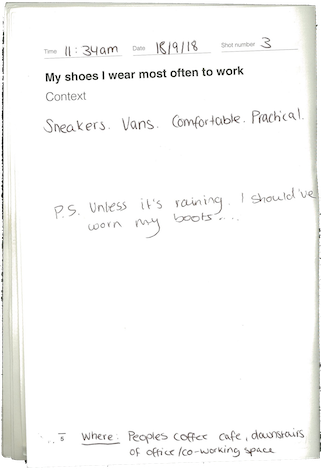 Time 11:34am Date 18/9/18 Shot number 3
My shoes I wear most often to work
Context
Sneakers. Vans. Comfortable. Practical.
P.S. Unless it's raining. I should've
worn my boots....
Where: Peoples coffee cafe, downstairs
of office/co-working space